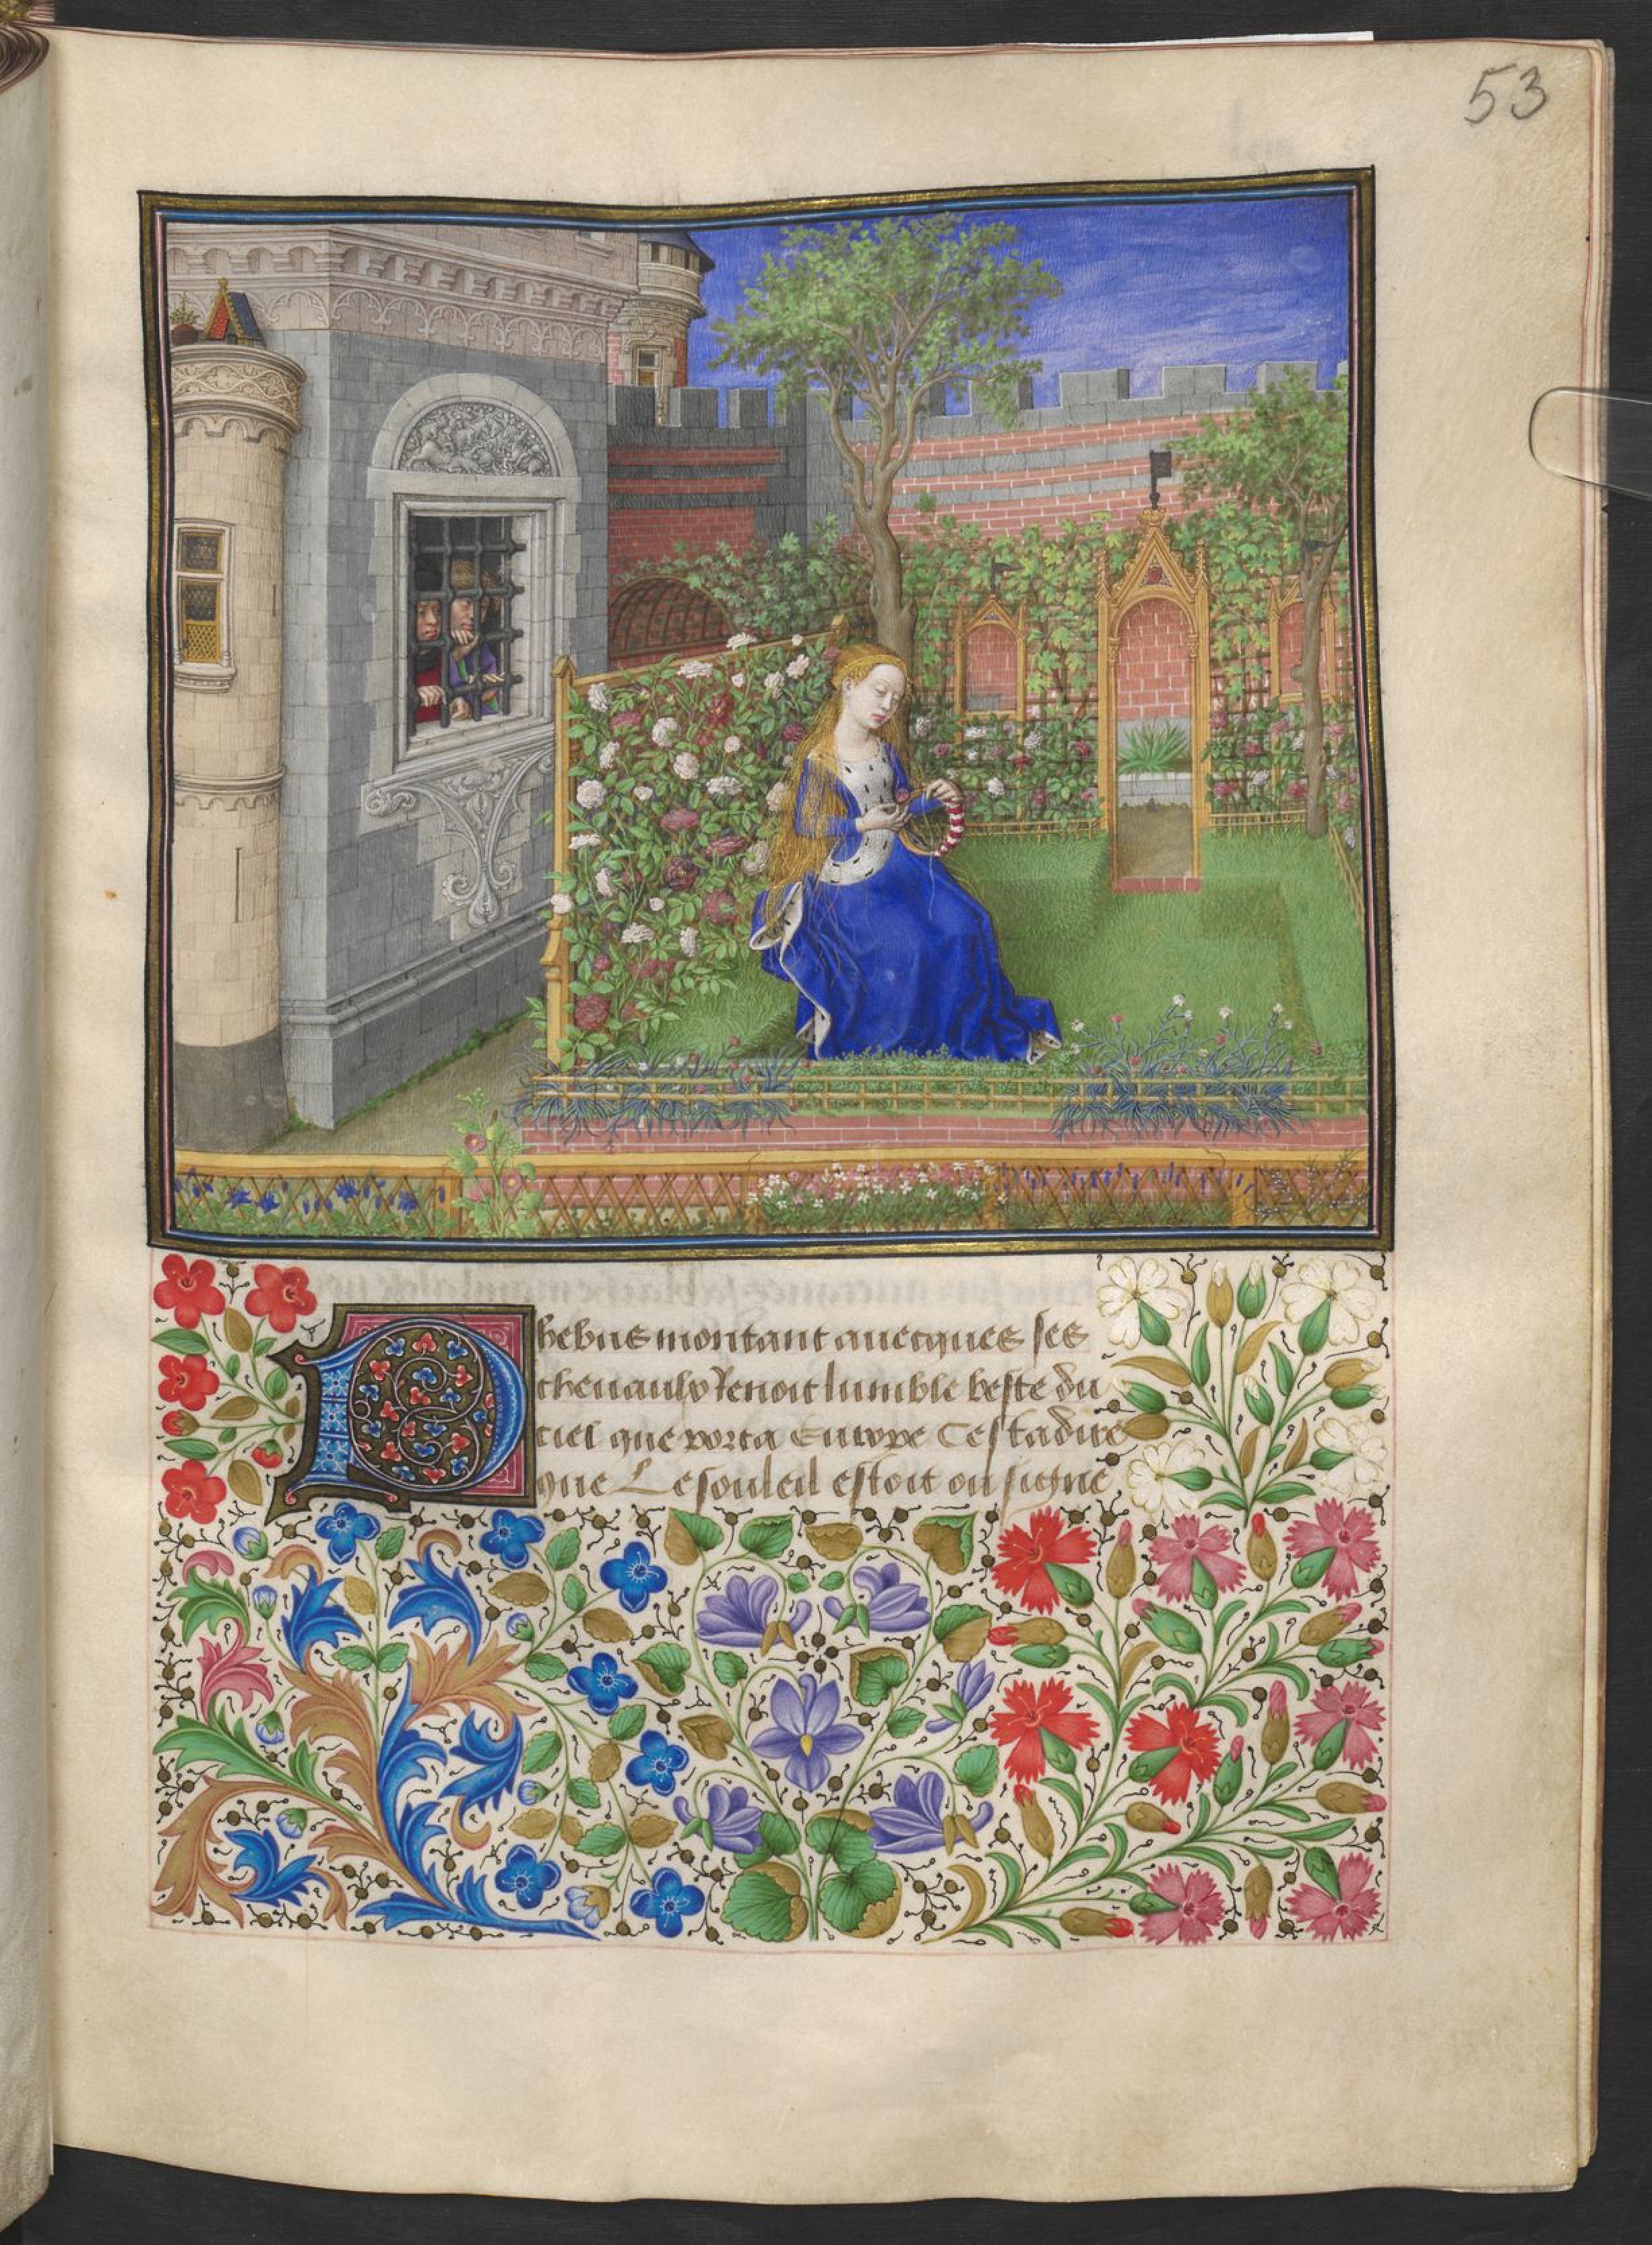 53
Phebus montant auecques ses
cheuaulx tenoit lumble beste du
ciel que porta Europe Cestadire
que Le souleil estoit ou signe